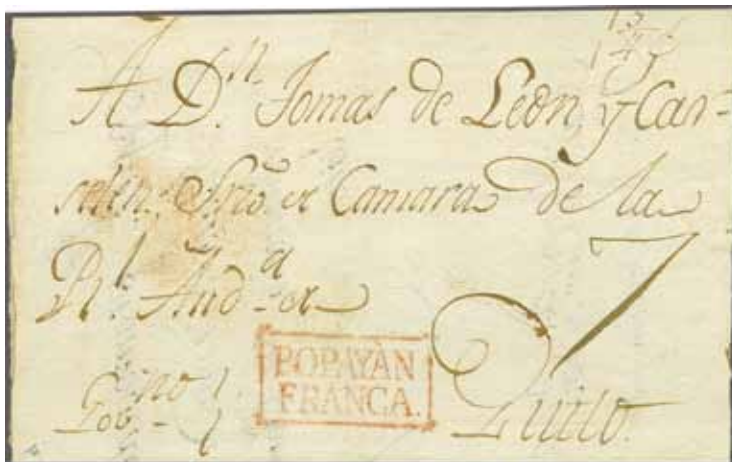 A D.n Tomas de Leon, y Car-
Srio. de Camara de la
Rl. Aud.a de
7
POPAYÀN
FRANCA.
Quito.